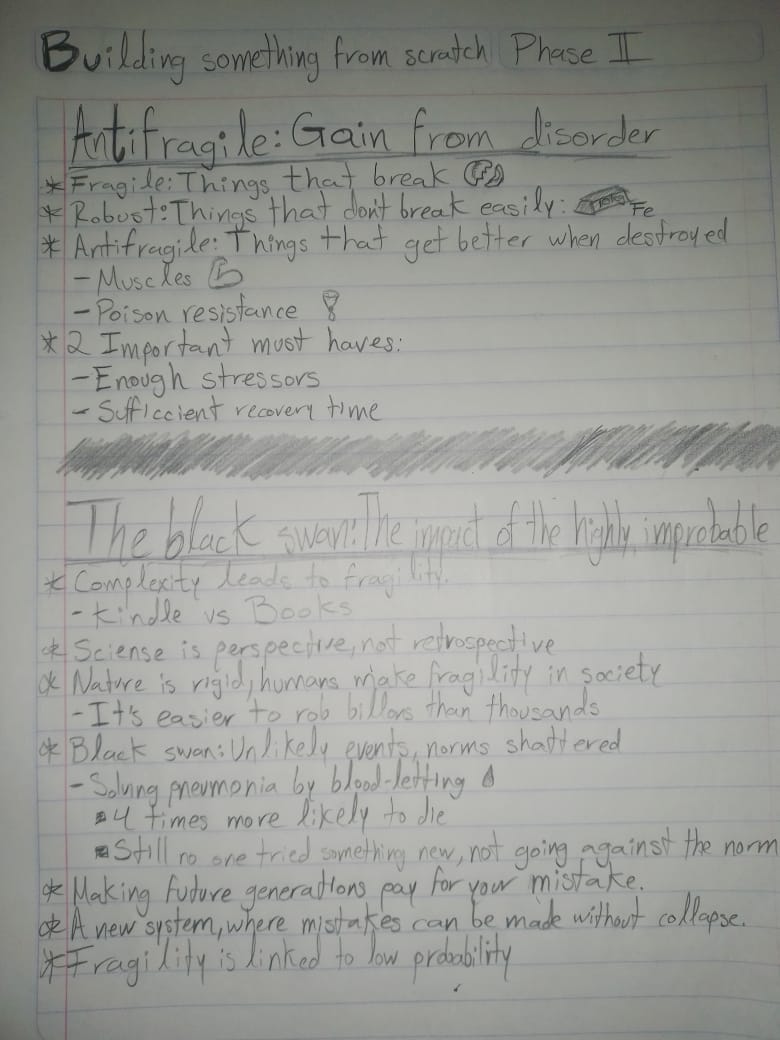 Building something from scratch Phase II
Antifragile: Gain from disorder
* Fragile: Things that break
* Robust: Things that don't break easily: Fe
* Antifragile: Things that get better when destroyed
- Muscles
- Poison resistance
* 2 Important must haves:
- Enough stressors
- Sufficcient recovery time
The black swan: The impact of the highly improbable
* Complexity leads to fragility.
- Kindle vs Books
* Sciense is perspective, not retrospective
* Nature is rigid, humans make fragility in society
- It's easier to rob billons than thousands
* Black swan: Unlikely events, norms shattered
- Solving pneumonia by blood-letting
▪ 4 times more likely to die
▪ Still no one tried something new, not going against the norm
* Making future generations pay for your mistake.
* A new system, where mistakes can be made without collapse.
* Fragility is linked to low probability